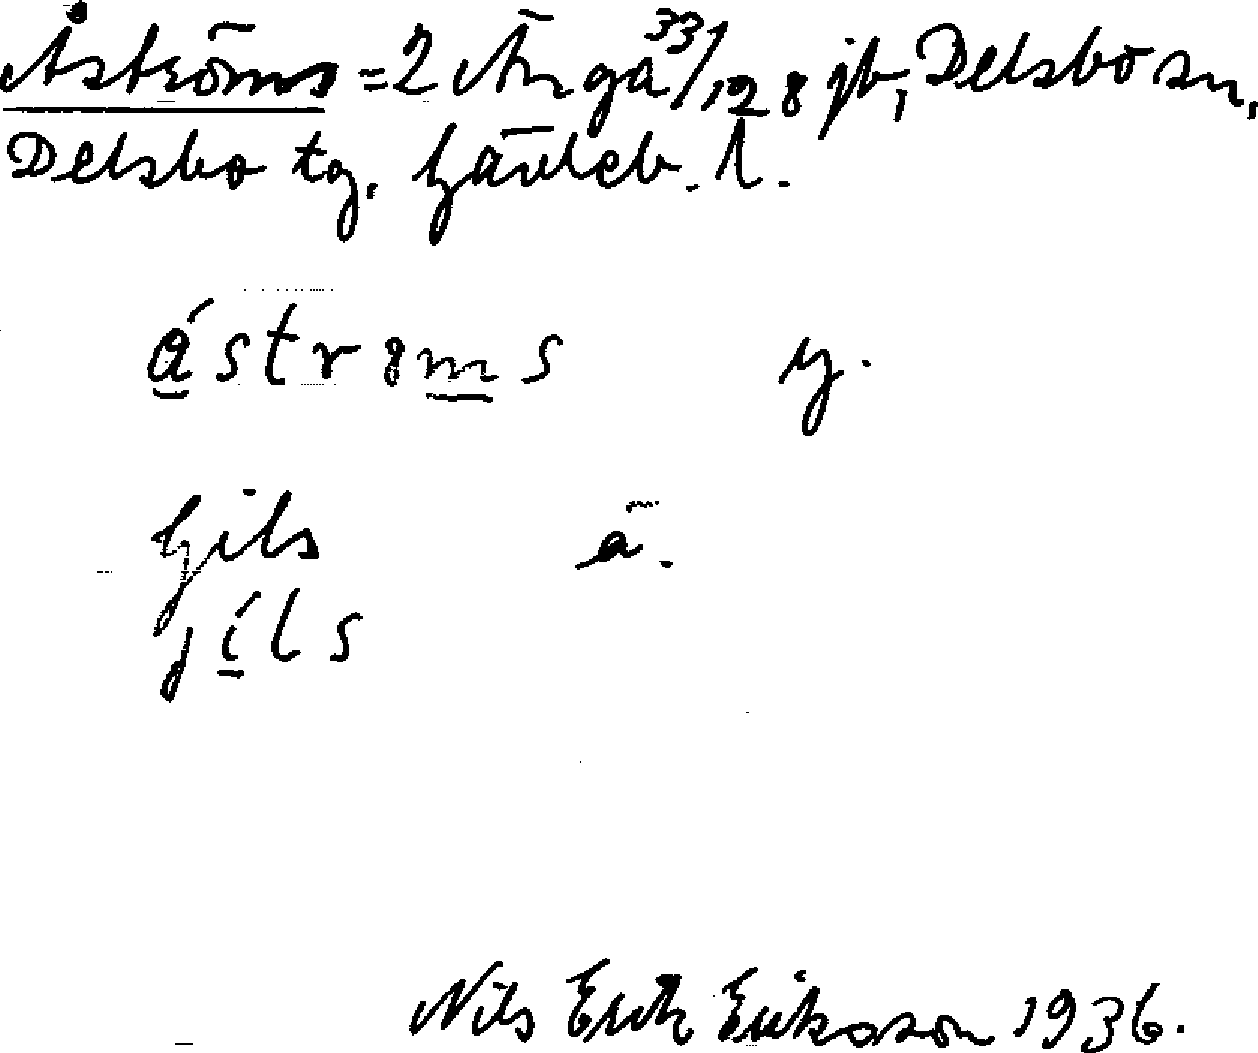 Åströms = 2 Änga 33/128 jb, Delsbo sn,
Delsbo tg. Gävleb. l.
åströms y.
Gils ä.
jils
Nils Erik Eriksson 1936.